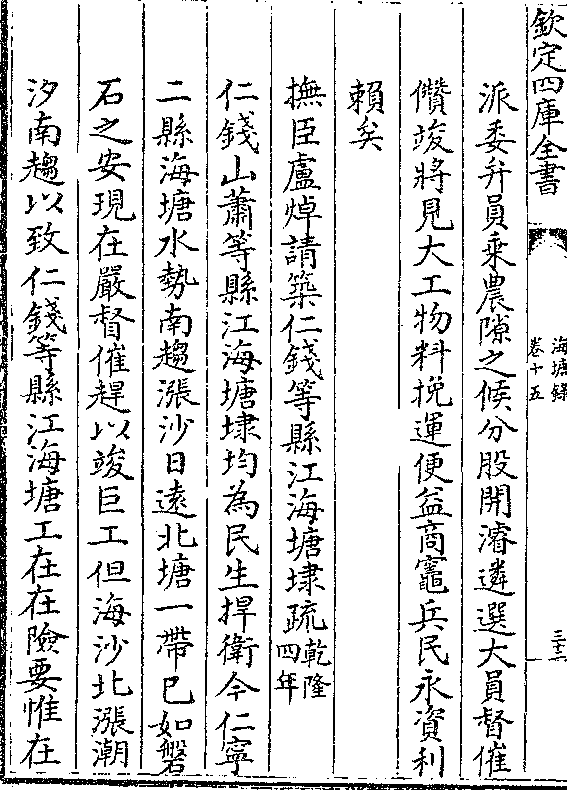 欽定四庫全書
海塘錄
卷十五
三十二
派委弁員乘農隙之候分股開濬遴選大員督催
儹竣將見大工物料挽運便益商竈兵民永資利
賴矣
撫臣盧焯請築仁錢等縣江海塘埭疏乾隆四年
仁錢山蕭等縣江海塘埭均為民生捍衛今仁寧
二縣海塘水勢南趨漲沙日遠北塘一帶已如磐
石之安現在嚴督催趕以竣巨工但海沙北漲潮
汐南趨以致仁錢等縣江海塘工在在險要惟在